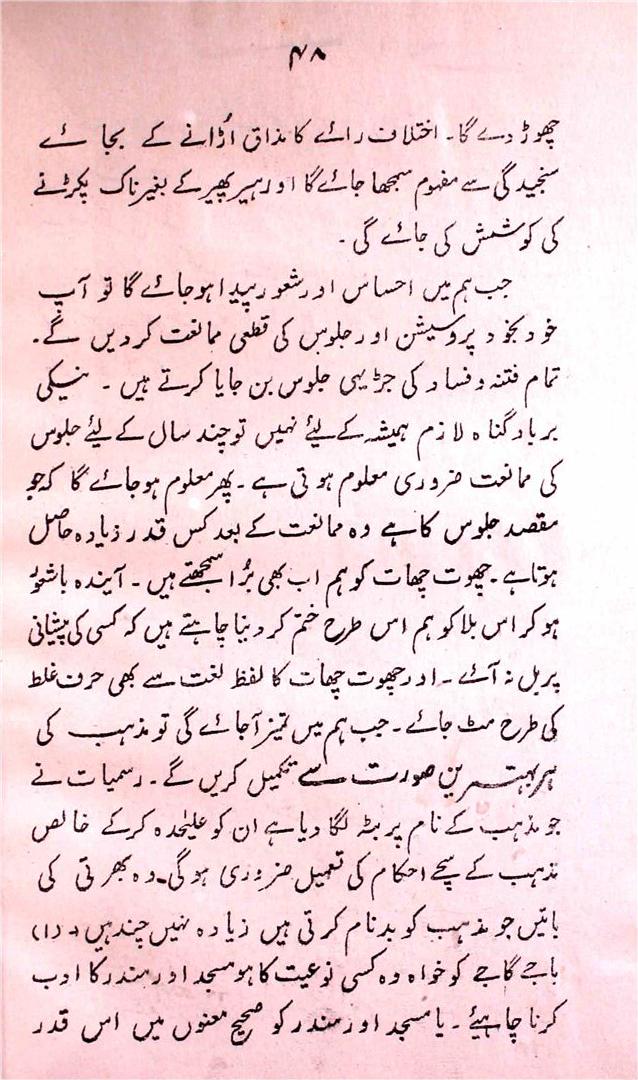 ۴۸
چھوڑ دے گا۔ اختلاف رائے کا مذاق اُڑانے کے بجائے
سنجیدگی سے مفہوم سمجھا جائے گا اور ہیر پھیر کے بغیر ناک پکڑنے
کی کوشش کی جائے گی۔
جب ہم میں احساس اور شعور پیدا ہو جائے گا تو آپ
خود بخود پروسیشن اور جلوس کی قطعی ممانعت کر دیں گے۔
تمام فتنہ و فساد کی جڑ یہی جلوس بن جایا کرتے ہیں ۔ نیکی
برباد گناہ لازم ہمیشہ کے لیئے نہیں تو چند سال کے لیئے جلوس
کی ممانعت ضروری معلوم ہوتی ہے۔ پھر معلوم ہو جائے گا کہ جو
مقصد جلوس کا ہے وہ ممانعت کے بعد کس قدر زیادہ حاصل
ہوتا ہے۔ چھوت چھات کو ہم اب بھی بُرا سمجھتے ہیں۔ آیندہ باشعور
ہو کر اس بلا کو ہم اس طرح ختم کر دینا چاہتے ہیں کہ کسی کی پیشانی
پر بل نہ آئے ۔ اور چھوت چھات کا لفظ لغت سے بھی حرف غلط
کی طرح مٹ جائے۔ جب ہم میں تمیز آجائے گی تو مذہب کی
ہر بہترین صورت سے تکمیل کریں گے۔ رسمیات نے
جو مذہب کے نام پر بٹہ لگا دیا ہے ان کو علیٰحدہ کر کے خالص
مذہب کے سچے احکام کی تعمیل ضروری ہوگی۔ وہ بھرتی کی
باتیں جو مذہب کو بدنام کرتی ہیں زیادہ نہیں چند ہیں۔ (۱)
باجے گاجے کو خواہ وہ کسی نوعیت کا ہو مسجد اور مندر کا ادب
کرنا چاہیئے۔ یا مسجد اور مندر کو صحیح معنوں میں اس قدر